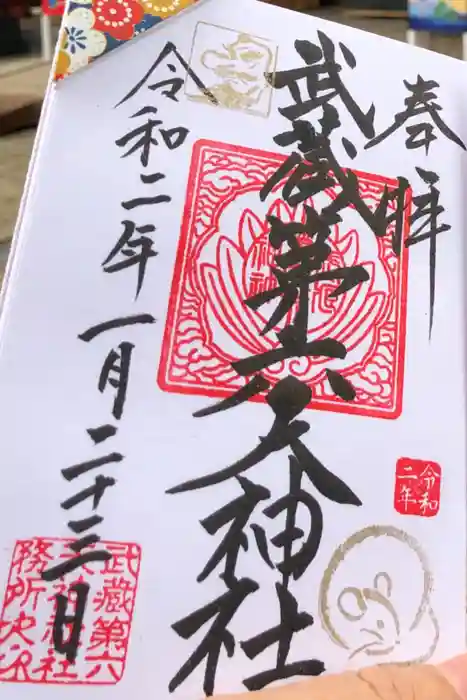 奉拝
武蔵第六天神社
令和二年一月二十三日
令和
二年
武蔵第六
天神社社
務所之印